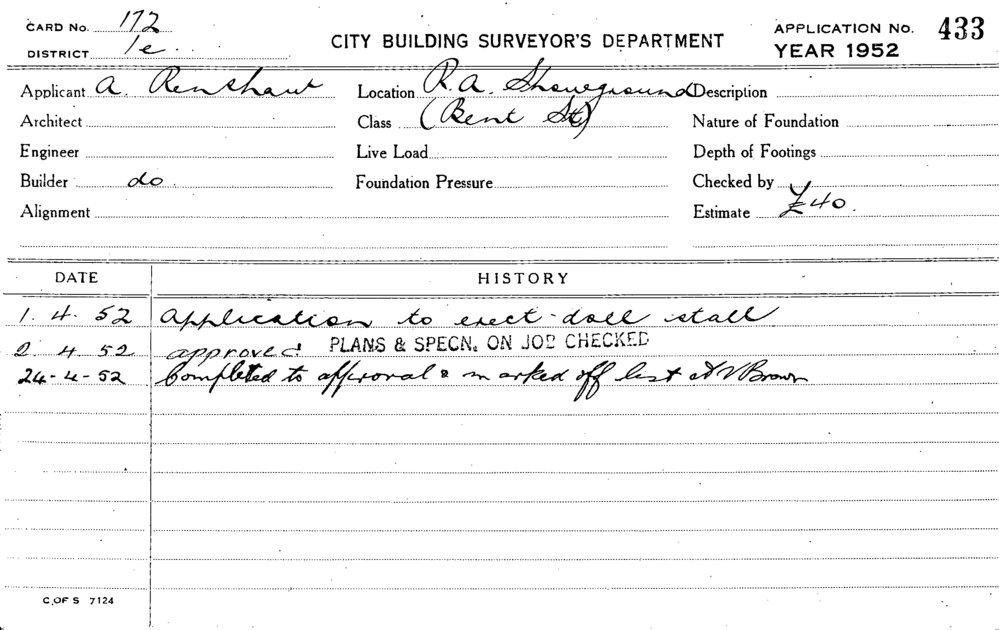 CARD No. 172
DISTRICT 1e
CITY BUILDING SURVEYOR'S DEPARTMENT
APPLICATION No. 433
YEAR 1952
Applicant A. Renshaw Location R.A. Showground Description
Architect Class (Bent St) Nature of Foundation
Engineer Live Load Depth of Footings
Builder do. Foundation Pressure Checked by
Alignment Estimate £40.
DATE HISTORY
1. 4. 52 Application to erect doll stall
2. 4 52 approved PLANS & SPECN. ON JOB CHECKED
24-4-52 Completed to approval & marked off list A V Brown
C. OF S 7124